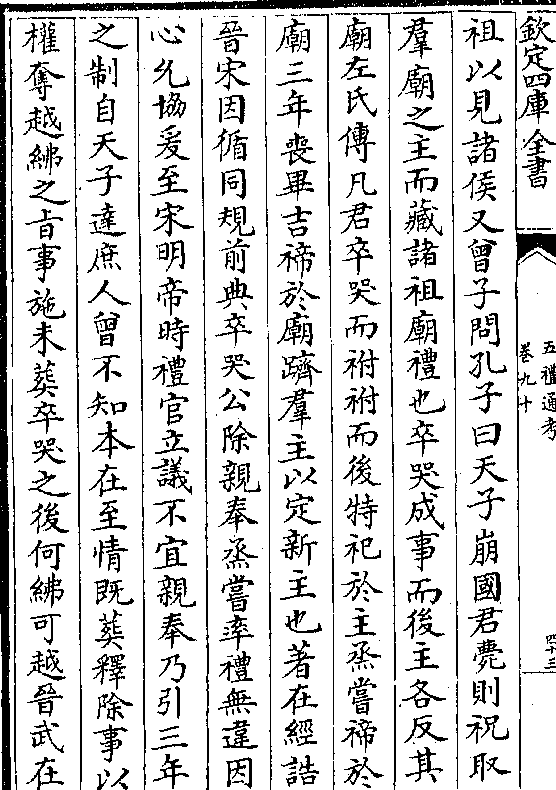 欽定四庫全書
五禮通考
卷九十
四十三
祖以見諸侯又曾子問孔子曰天子崩國君薨則祝取
羣廟之主而藏諸祖廟禮也卒哭成事而後主各反其
廟左氏傳凡君卒哭而祔祔而後特祀於主烝嘗禘於
廟三年喪畢吉禘於廟躋羣主以定新主也著在經誥
晉宋因循同規前典卒哭公除親奉烝嘗率禮無違因
心允協爰至宋明帝時禮官立議不宜親奉乃引三年
之制自天子達庶人曾不知本在至情既葬釋除事以
權奪越紼之㫖事施未葬卒哭之後何紼可越晉武在